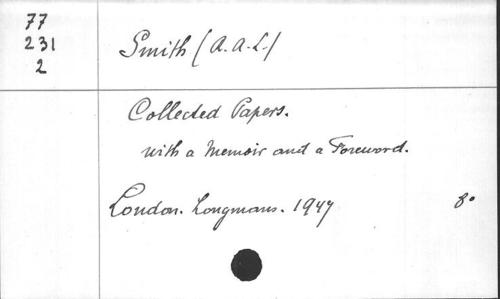 77
231
2
Smith (A.A.L.)
Collected Papers.
with a Memoir and a Foreword.
London. Longmans. 1947 8°